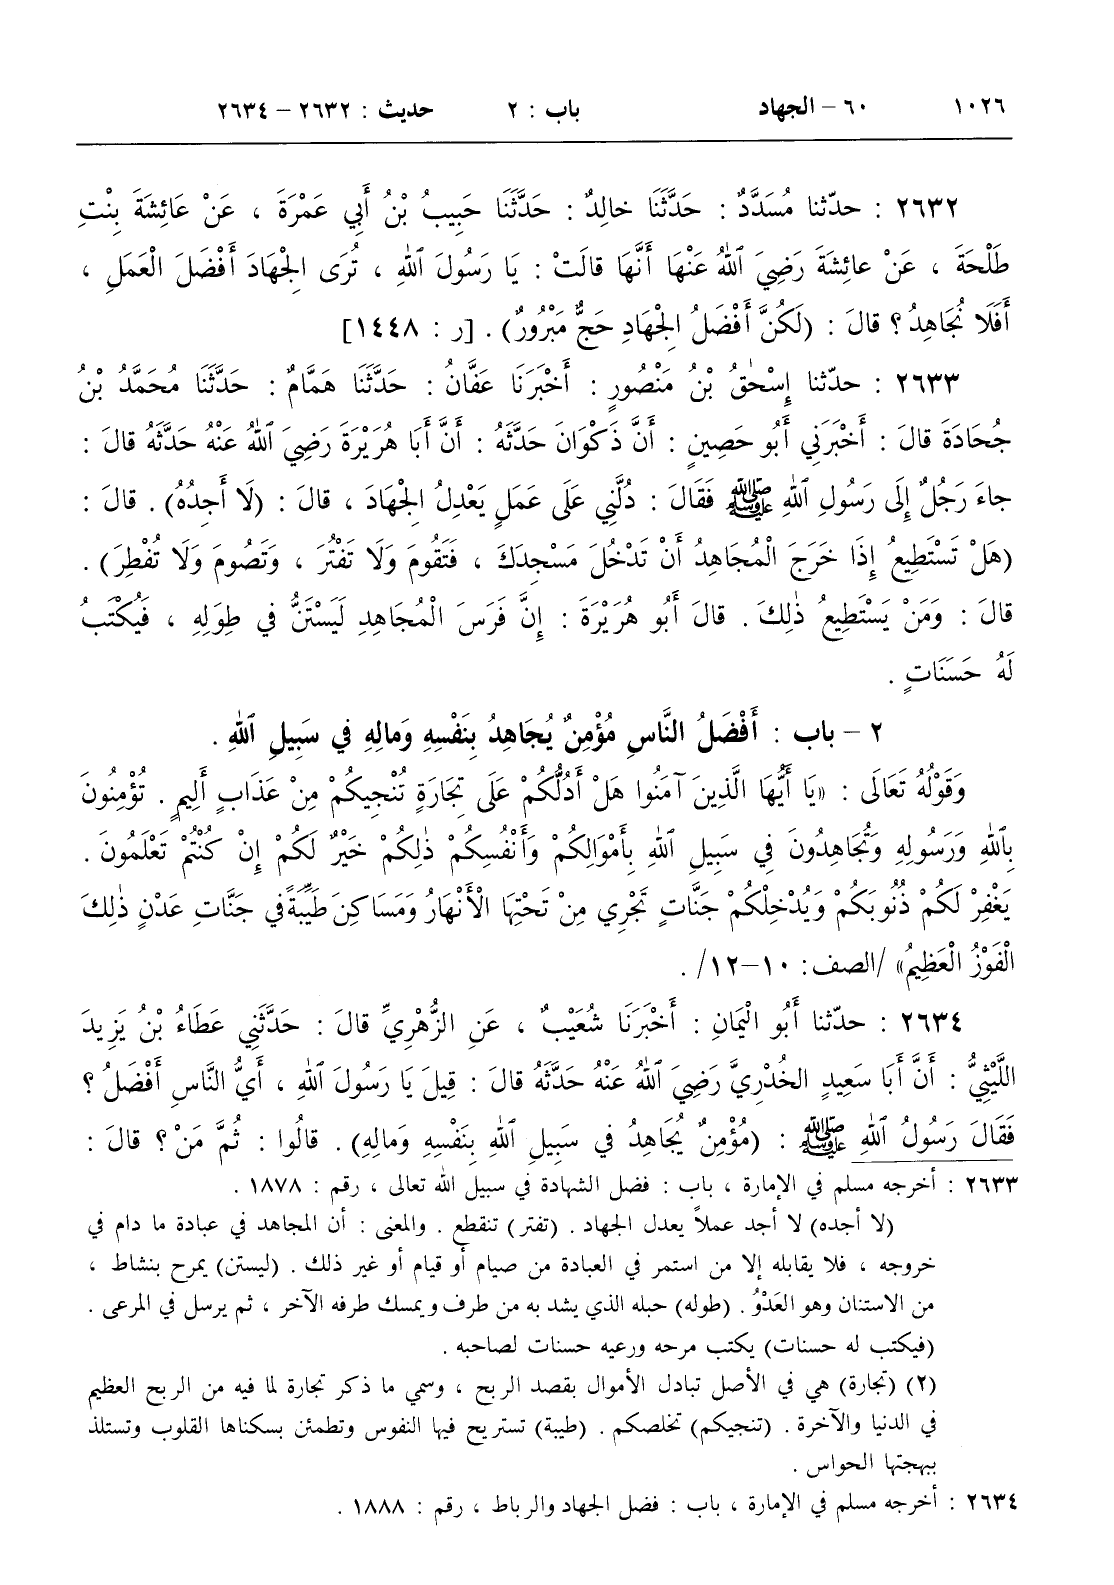 ١٠٢٦ ٦٠ – الجهاد باب : ٢ حديث : ٢٦٣٢ – ٢٦٣٤
٢٦٣٢ : حدّثنا مُسَدَّدٌ : حَدَّثَنَا خالِدٌ : حَدَّثَنَا حَبِيبُ بْنُ أَبِي عَمْرَةَ ، عَنْ عَائِشَةَ بِنْتِ
طَلْحَةَ ، عَنْ عائِشَةَ رَضِيَ ٱللهُ عَنْهَا أَنَّهَا قالَتْ : يَا رَسُولَ ٱللهِ ، تُرَى الْجِهَادَ أَفْضَلَ الْعَمَلِ ،
أَفَلَا نُجَاهِدُ ؟ قالَ : (لَكُنَّ أَفْضَلُ الْجِهَادِ حَجٌّ مَبْرُورٌ) . [ر : ١٤٤٨]
٢٦٣٣ : حدّثنا إِسْحٰقُ بْنُ مَنْصُورٍ : أَخْبَرَنَا عَفَّانُ : حَدَّثَنَا هَمَّامٌ : حَدَّثَنَا مُحَمَّدُ بْنُ
جُحَادَةَ قالَ : أَخْبَرَنِي أَبُو حَصِينٍ : أَنَّ ذَكْوَانَ حَدَّثَهُ : أَنَّ أَبَا هُرَيْرَةَ رَضِيَ ٱللهُ عَنْهُ حَدَّثَهُ قالَ :
جاءَ رَجُلٌ إِلَى رَسُولِ ٱللهِ ﷺ فَقَالَ : دُلَّنِي عَلَى عَمَلٍ يَعْدِلُ الْجِهَادَ ، قالَ : (لَا أَجِدُهُ) . قالَ :
(هَلْ تَسْتَطِيعُ إِذَا خَرَجَ الْمُجَاهِدُ أَنْ تَدْخُلَ مَسْجِدَكَ ، فَتَقُومَ وَلَا تَفْتُرَ ، وَتَصُومَ وَلَا تُفْطِرَ) .
قالَ : وَمَنْ يَسْتَطِيعُ ذٰلِكَ . قالَ أَبُو هُرَيْرَةَ : إِنَّ فَرَسَ الْمُجَاهِدِ لَيَسْتَنُّ فِي طِوَلِهِ ، فَيُكْتَبُ
لَهُ حَسَنَاتٍ .
٢ – باب : أَفْضَلُ النَّاسِ مُؤْمِنٌ يُجَاهِدُ بِنَفْسِهِ وَمالِهِ فِي سَبِيلِ ٱللهِ .
وَقَوْلُهُ تَعَالَى : «يَا أَيُّهَا الَّذِينَ آمَنُوا هَلْ أَدُلُّكُمْ عَلَى تِجَارَةٍ تُنْجِيكُمْ مِنْ عَذَابٍ أَلِيمٍ . تُؤْمِنُونَ
بِٱللهِ وَرَسُولِهِ وَتُجَاهِدُونَ فِي سَبِيلِ ٱللهِ بِأَمْوَالِكُمْ وَأَنْفُسِكُمْ ذٰلِكُمْ خَيْرٌ لَكُمْ إِنْ كُنْتُمْ تَعْلَمُونَ .
يَغْفِرْ لَكُمْ ذُنُوبَكُمْ وَيُدْخِلْكُمْ جَنَّاتٍ تَجْرِي مِنْ تَحْتِهَا الْأَنْهَارُ وَمَسَاكِنَ طَيِّبَةً فِي جَنَّاتِ عَدْنٍ ذٰلِكَ
الْفَوْزُ الْعَظِيمُ» /الصف: ١٠–١٢/ .
٢٦٣٤ : حدّثنا أَبُو الْيَمَانِ : أَخْبَرَنَا شُعَيْبٌ ، عَنِ الزُّهْرِيِّ قالَ : حَدَّثَنِي عَطَاءُ بْنُ يَزِيدَ
اللَّيْثِيُّ : أَنَّ أَبَا سَعِيدٍ الخُدْرِيَّ رَضِيَ ٱللهُ عَنْهُ حَدَّثَهُ قالَ : قِيلَ يَا رَسُولَ ٱللهِ ، أَيُّ النَّاسِ أَفْضَلُ ؟
فَقَالَ رَسُولُ ٱللهِ ﷺ : (مُؤْمِنٌ يُجَاهِدُ فِي سَبِيلِ ٱللهِ بِنَفْسِهِ وَمالِهِ) . قالُوا : ثُمَّ مَنْ ؟ قالَ :
٢٦٣٣ : أخرجه مسلم في الإمارة ، باب : فضل الشهادة في سبيل الله تعالى ، رقم : ١٨٧٨ .
(لا أجده) لا أجد عملاً يعدل الجهاد . (تفتر) تنقطع . والمعنى : أن المجاهد في عبادة ما دام في
خروجه ، فلا يقابله إلا من استمر في العبادة من صيام أو قيام أو غير ذلك . (ليستن) يمرح بنشاط ،
من الاستنان وهو العَدْوُ . (طوله) حبله الذي يشد به من طرف ويمسك طرفه الآخر ، ثم يرسل في المرعى .
(فيكتب له حسنات) يكتب مرحه ورعيه حسنات لصاحبه .
(٢) (تجارة) هي في الأصل تبادل الأموال بقصد الربح ، وسمي ما ذكر تجارة لما فيه من الربح العظيم
في الدنيا والآخرة . (تنجيكم) تخلصكم . (طيبة) تستريح فيها النفوس وتطمئن بسكناها القلوب وتستلذ
ببهجتها الحواس .
٢٦٣٤ : أخرجه مسلم في الإمارة ، باب : فضل الجهاد والرباط ، رقم : ١٨٨٨ .